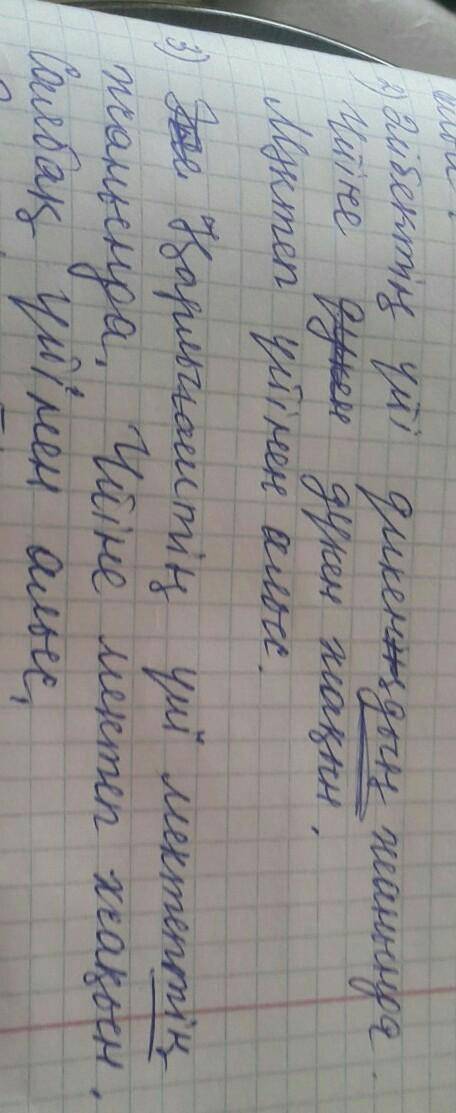 2) Әйбектің үйі дүкеннің дың жанында.
Үйіне дүкен дүкен жақын.
Мұктеп үйінен алыс.
3) Қарлығаштің үйі мектептің
жанында. Үйіне мектеп жақын.
Саябақ үйінен алыс,